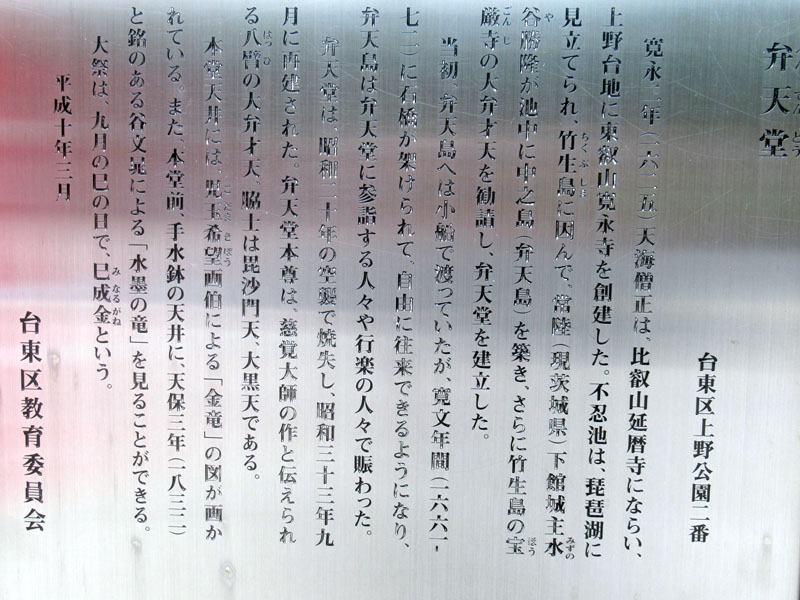 弁天堂
台東区上野公園二番
寛永二年（一六二五）天海僧正は、比叡山延暦寺にならい、
上野台地に東叡山寛永寺を創建した。不忍池は、琵琶湖に
見立てられ、竹生島に因んで、常陸（現茨城県）下館城主水
谷勝隆が池中に中之島（弁天島）を築き、さらに竹生島の宝
厳寺の大弁才天を勧請し、弁天堂を建立した。
当初、弁天島へは小船で渡っていたが、寛文年間（一六六一-
七二）に石橋が架けられて、自由に往来できるようになり、
弁天島は弁天堂に参詣する人々や行楽の人々で賑わった。
弁天堂は、昭和二十年の空襲で焼失し、昭和三十三年九
月に再建された。弁天堂本尊は、慈覚大師の作と伝えられ
る八臂の大弁才天、脇士は毘沙門天、大黒天である。
本堂天井には、児玉希望画伯による「金竜」の図が画か
れている。また、本堂前、手水鉢の天井に、天保三年（一八三二）
と銘のある谷文晁による「水墨の竜」を見ることができる。
大祭は、九月の巳の日で、巳成金という。
平成十年三月
台東区教育委員会